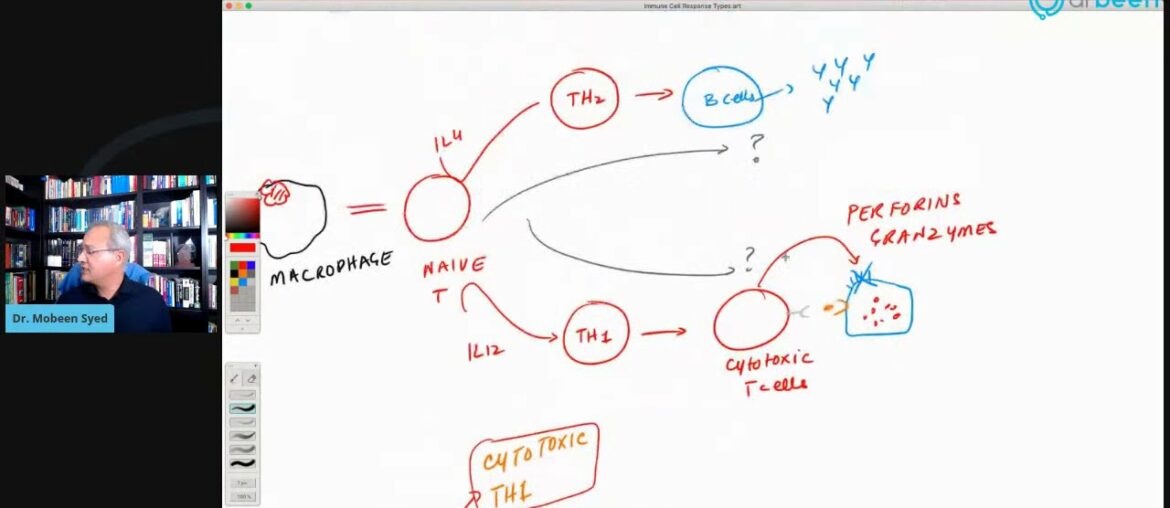 Immune Cell Response Types.art
drbeen
TH2
B cells
IL4
?
PERFORINS
GRANZYMES
MACROPHAGE
NAIVE
T
?
Dr. Mobeen Syed
IL12
TH1
CYTOTOXIC
T cells
CYTOTOXIC
TH1
100%